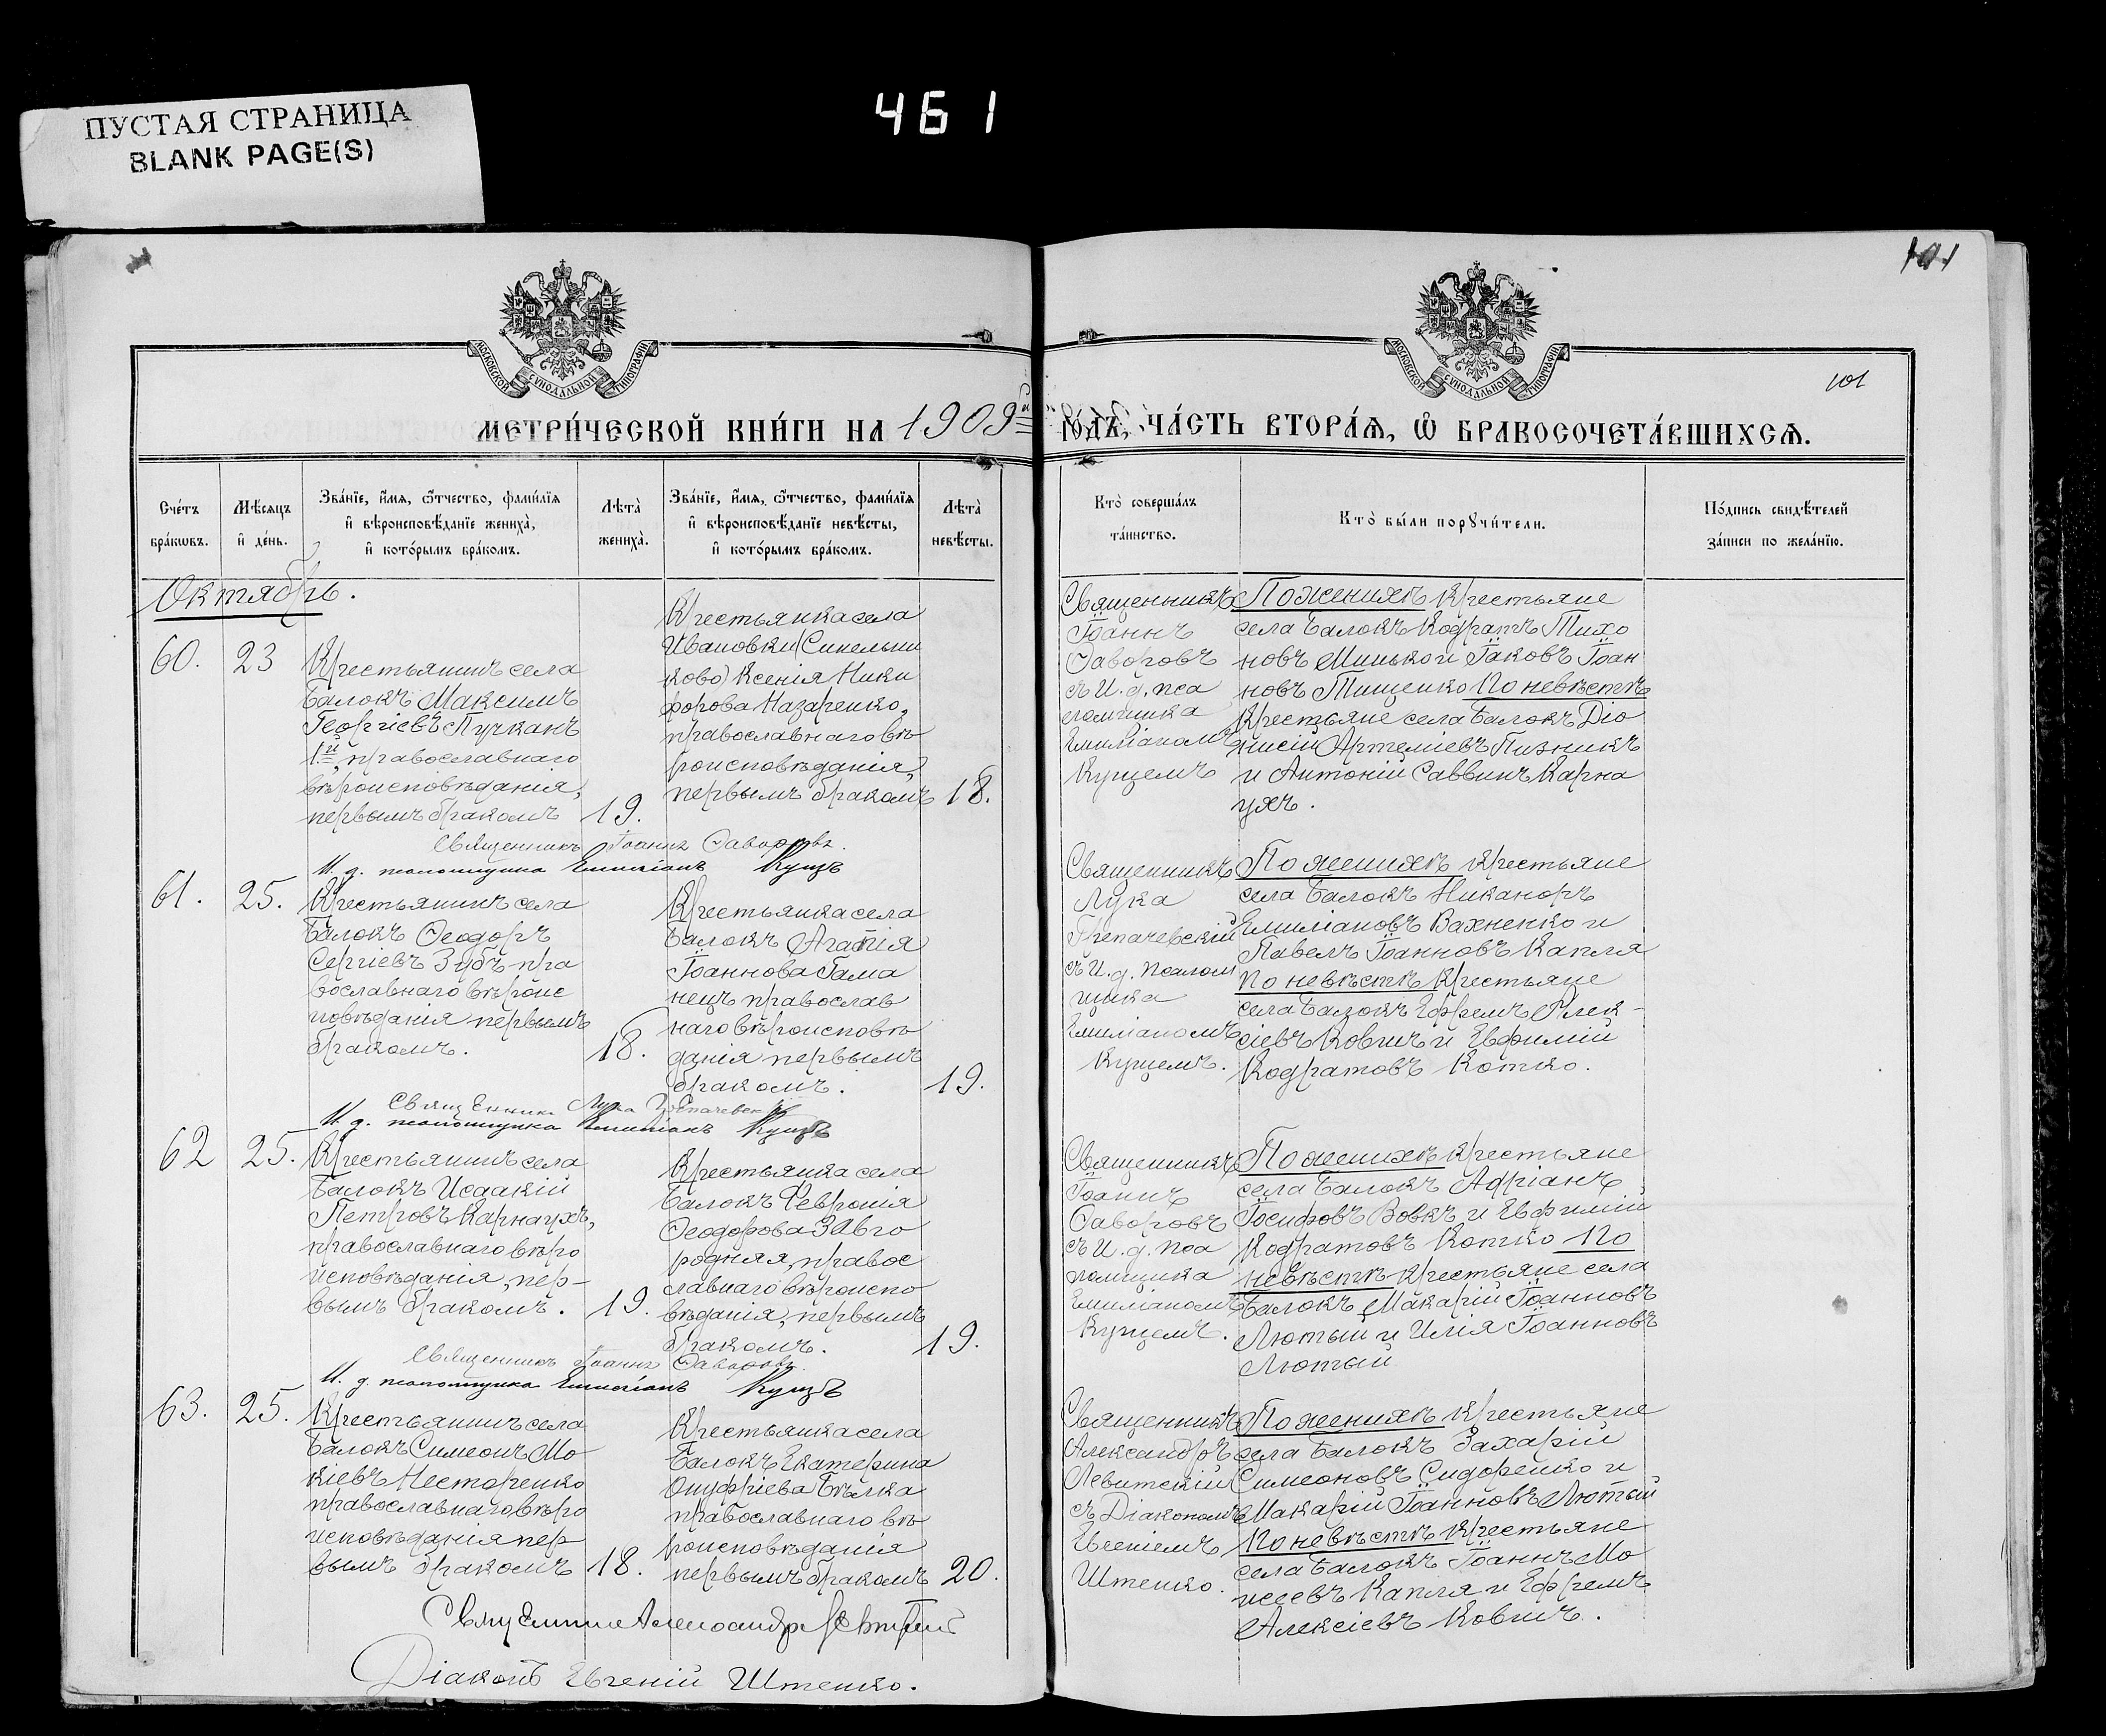 ПУСТАЯ СТРАНИЦА
BLANK PAGE(S)
461
101
101
МОСКОВСКОЙ СѴНОДАЛЬНОЙ ТИПОГРАФІИ
МОСКОВСКОЙ СѴНОДАЛЬНОЙ ТИПОГРАФІИ
МЕТРИ́ЧЕСКОЙ КНИ́ГИ НА 1909й ГО́ДЪ, ЧА́СТЬ ВТОРА́Ѧ, Ѽ БРАКОСОЧЕТА́ВШИХСѦ.
Сче́тъ бра́кѡвъ.
Мѣ́сяцъ и҆ де́нь.
Зва́нїе, и҆́мѧ, ѻ҆́тчество, фами́лїѧ
и҆ вѣроисповѣ́данїе жениха̀,
и҆ кото́рымъ бра́комъ.
Лѣта̀ жениха̀.
Зва́нїе, и҆́мѧ, ѻ҆́тчество, фами́лїѧ
и҆ вѣроисповѣ́данїе невѣ́сты,
и҆ кото́рымъ бра́комъ.
Лѣта̀ невѣ́сты.
Кто̀ соверша́лъ
та́инство.
Кто̀ бы́ли порꙋчи́тели.
По́дпись свидѣ́телей
за́писи по жела́нїю.
Октябрь.
60.
23
Крестьянинъ села
Балокъ Максимъ
Георгіевъ Пучканъ
1й, православнаго
вѣроисповѣданія,
первымъ бракомъ
19.
Крестьянка села
Ивановки (Синельни
ково) Ксенія Ники
форова Назаренко,
православнаго вѣ
роисповѣданія,
первымъ бракомъ
18.
Священникъ
Іоаннъ
Ѳаворовъ
съ И. д. пса
ломщика
Емиліаномъ
Куцемъ
По женихѣ крестьяне
села Балокъ Кодратъ Тихо
новъ Минько и Іаковъ Іоан
новъ Тищенко По невѣстѣ
крестьяне села Балокъ Діо
нисій Артеміевъ Пизникъ
и Антоній Саввинъ Карна
ухъ.
Священникъ Іоаннъ Ѳаворовъ.
И. д. псаломщика Емиліанъ Куцъ
61.
25.
Крестьянинъ села
Балокъ Ѳеодоръ
Сергіевъ Зубъ пра
вославнаго вѣроис
повѣданія первымъ
бракомъ.
18.
Крестьянка села
Балокъ Агапія
Іоаннова Гама
нецъ православ
наго вѣроисповѣ
данія первымъ
бракомъ.
19.
Священникъ
Лука
Грепачевскій
съ И. д. псалом
щика
Емиліаномъ
Куцемъ.
По женихѣ крестьяне
села Балокъ Никаноръ
Емиліановъ Вахненко и
Павелъ Іоанновъ Капля
По невѣстѣ крестьяне
села Балокъ Ефремъ Алек-
сіевъ Ковпичъ и Евфимій
Кодратовъ Котко.
Священникъ Лука Грепачевскій
И. д. псаломщика Емиліанъ Куцъ
62
25.
Крестьянинъ села
Балокъ Исаакій
Петровъ Карнаухъ,
православнаго вѣро
исповѣданія, пер-
вымъ бракомъ.
19.
Крестьянка села
Балокъ Февронія
Ѳеодорова Завго
родняя, правос
лавнаго вѣроиспо
вѣданія, первымъ
бракомъ.
19.
Священникъ
Іоаннъ
Ѳаворовъ
съ И. д. пса
ломщика
Емиліаномъ
Куцемъ.
По женихѣ крестьяне
села Балокъ Адріанъ
Іосифовъ Вовкъ и Евфимій
Кодратовъ Котко По
невѣстѣ крестьяне села
Балокъ Макарій Іоанновъ
Лютый и Илія Іоанновъ
Лютый
Священникъ Іоаннъ Ѳаворовъ.
И. д. псаломщика Емиліанъ Куцъ
63.
25.
Крестьянинъ села
Балокъ Симеонъ Мо
кіевъ Несторенко
православнаго вѣро
исповѣданія пер
вымъ бракомъ
18.
Крестьянка села
Балокъ Екатерина
Онуфріева Бѣлка
православнаго вѣ
роисповѣданія
первымъ бракомъ
20.
Священникъ
Александръ
Левитскій
съ Діакономъ
Евгеніемъ
Штенко.
По женихѣ крестьяне
села Балокъ Захарій
Симеоновъ Сидоренко и
Макарій Іоанновъ Лютый
По невѣстѣ крестьяне
села Балокъ Іоаннъ Мо
исеевъ Капля и Ефремъ
Алексіевъ Ковпичъ.
Священникъ Александръ Левитскій
Діаконъ Евгеній Штенко.